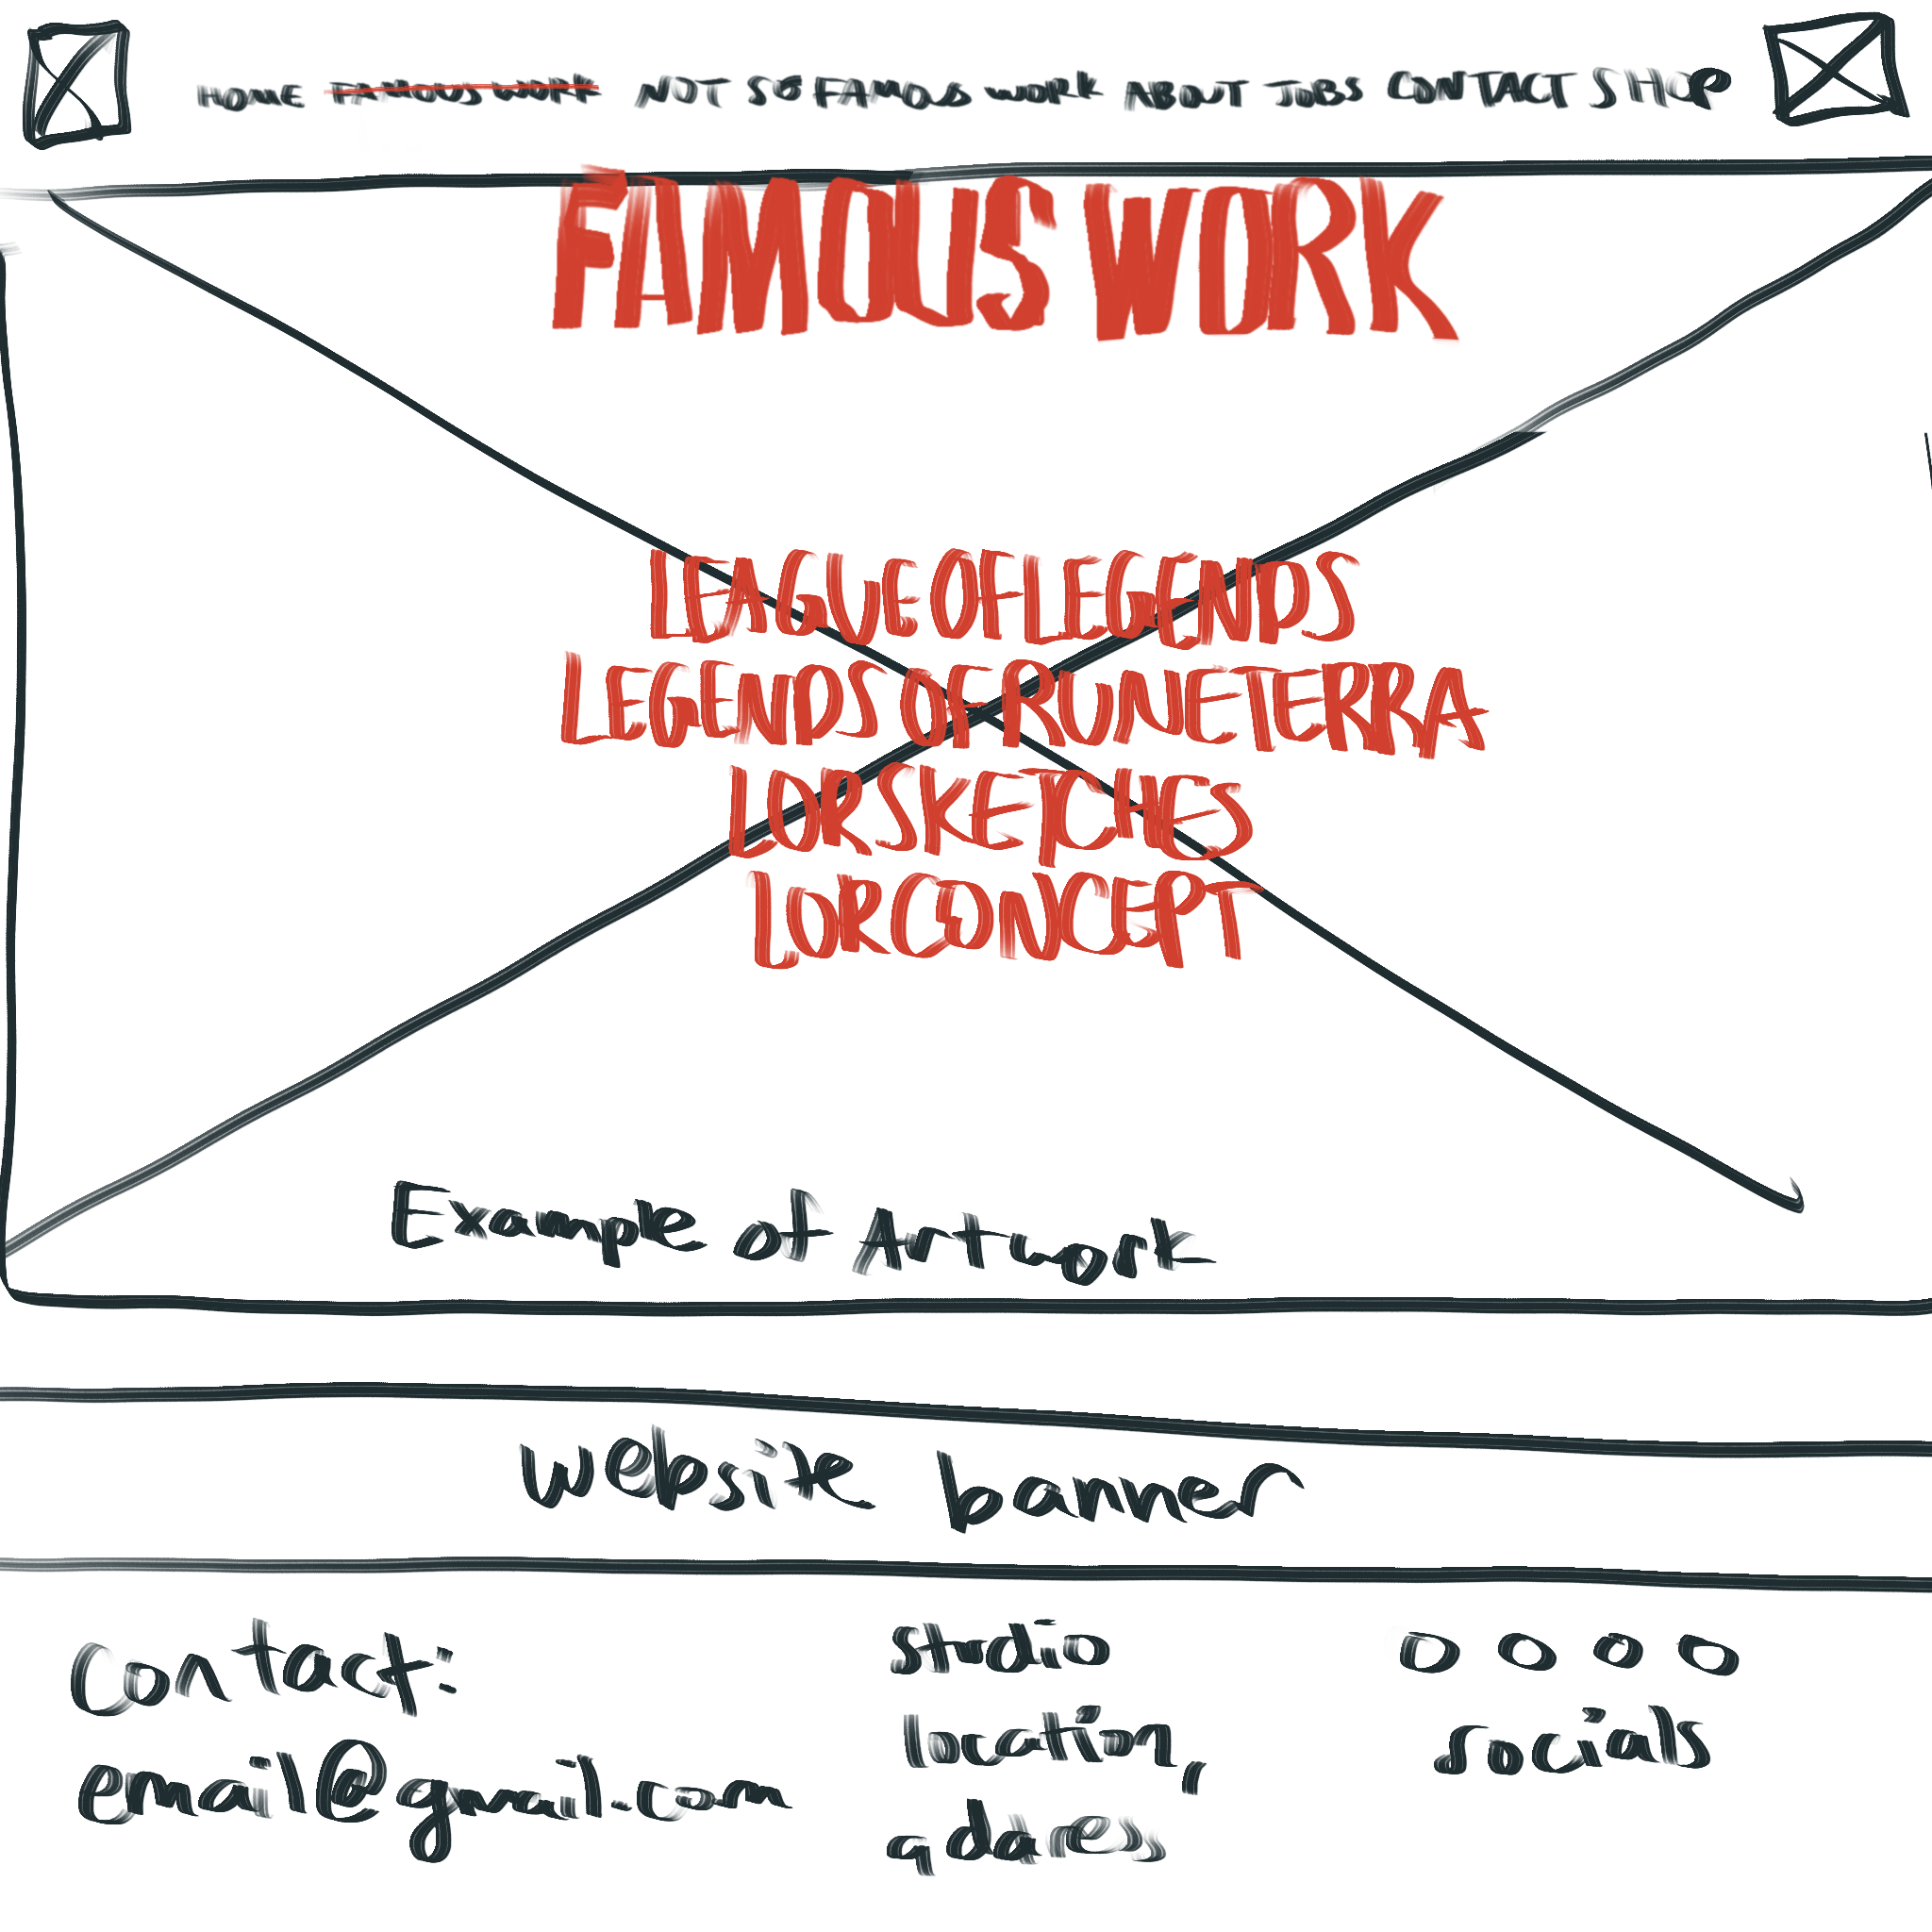 HOME FAMOUS WORK NOT SO FAMOUS WORK ABOUT JOBS CONTACT SHOP
FAMOUS WORK
LEAGUE OF LEGENDS
LEGENDS OF RUNETERRA
LOR SKETCHES
LOR CONCEPT
Example of Artwork
website banner
Contact:
email@gmail.com
studio
location,
adaress
socials